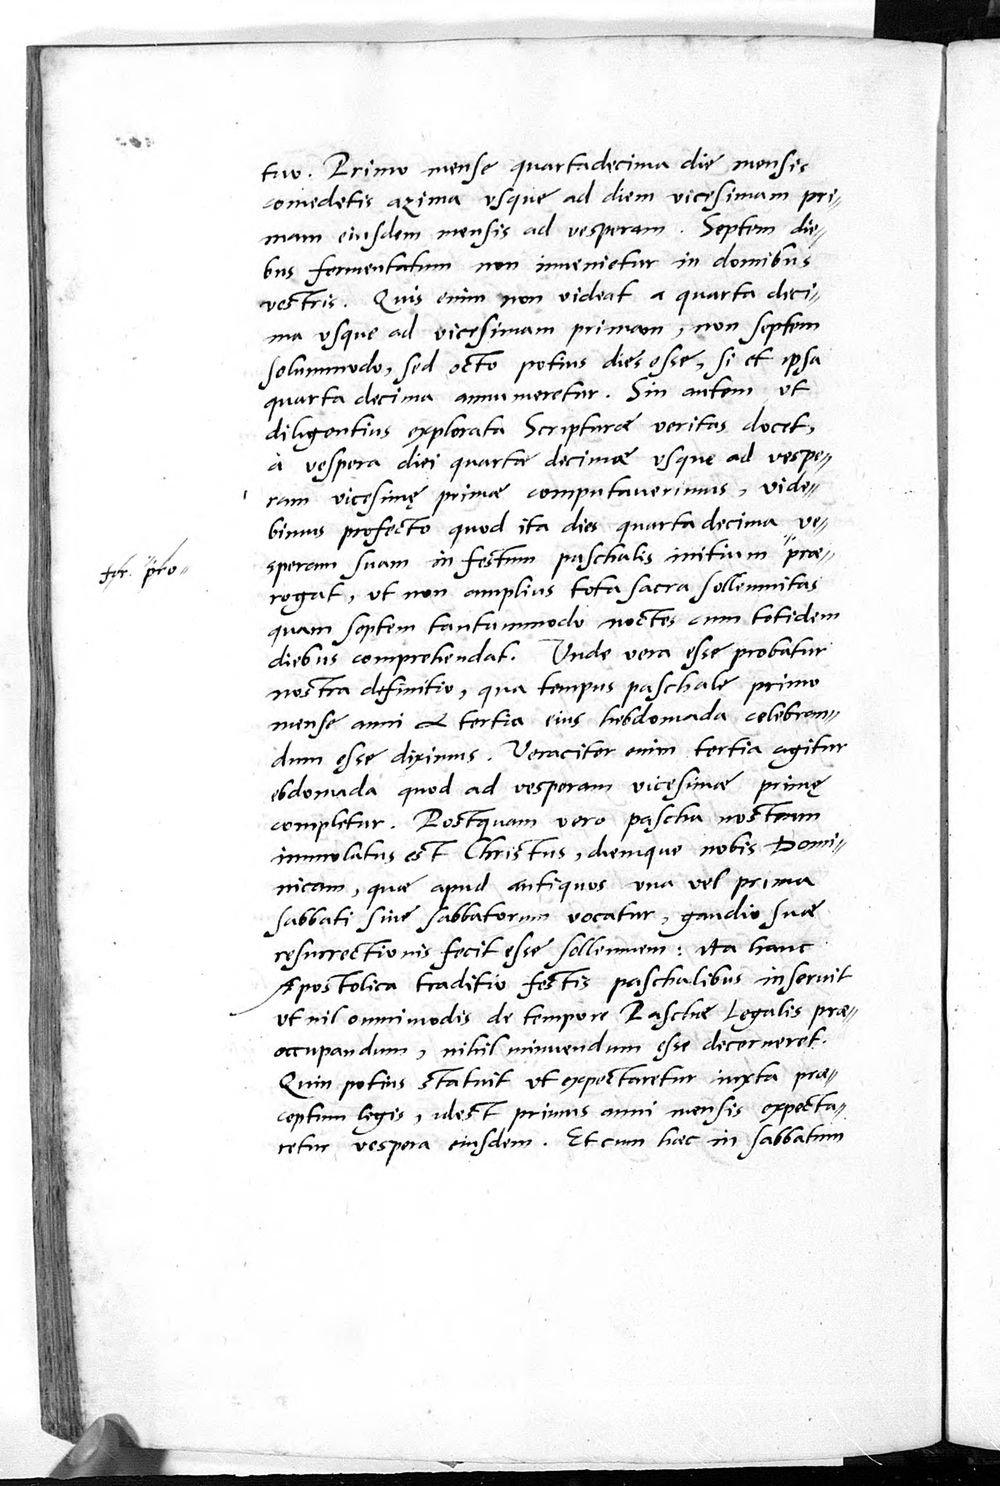 tuo. Primo mense quartadecima die mensis
comedetis azima usque ad diem vicesimam pri„
mam eiusdem mensis ad vesperam. Septem die„
bus fermentatum non invenietur in domibus
vestris. Quis enim non videat a quarta deci„
ma usque ad vicesimam primam, non septem
solummodo, sed octo potius dies esse, si et ipsa
quarta decima annumeretur. Sin autem ut
diligentius explorata Scripturæ veritas docet,
à vespera diei quartæ decimæ usque ad vespe„
ram vicesimę primæ computaverimus, vide„
bimus profecto quod ita dies quarta decima ve„
speram suam in festum paschalis initium "præ„
rogat, ut non amplius tota sacra sollemnitas
quam septem tantummodo noctes cum totidem
diebus comprehendat. Unde vera esse probatur
nostra definitio, qua tempus paschale primo
mense anni & tertia eius hebdomada celebran„
dum esse diximus. Veraciter enim tertia agitur
ebdomada quod ad vesperam vicesimæ primę
completur. Postquam vero pascha nostrum
immolatus est Christus, diemque nobis Domi„
nicam, quæ apud antiquos una vel prima
sabbati sive sabbatorum vocatur, gaudio suæ
resurrectionis fecit esse sollemnem: ita hanc
Apostolica traditio festis paschalibus inseruit
ut nil omnimodis de tempore Paschæ Legalis præ„
occupandum, nihil minuendum esse decerneret.
Quin potius statuit ut expectaretur iuxta præ„
ceptum legis, idest primus anni mensis expecta„
retur vespera eiusdem. Et cum hæc in sabbatum
for. "pro„